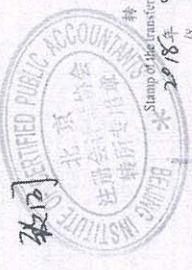 BEIJING INSTITUTE OF CERTIFIED PUBLIC ACCOUNTANTS
北京
注册会计师协会
转所专用章
转
Stamp of the transfer
2018年